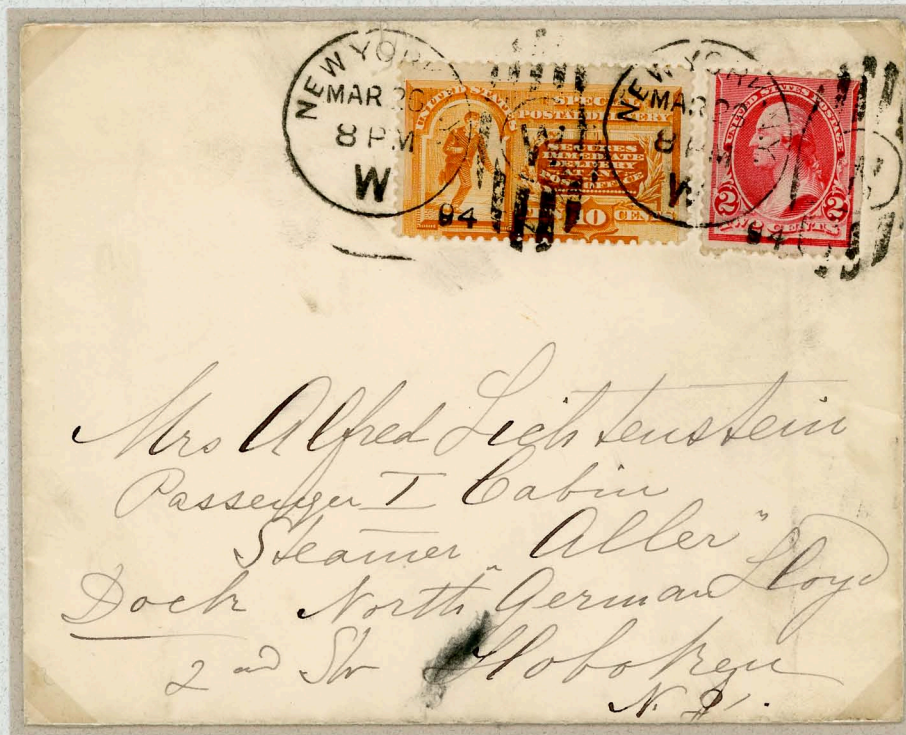 NEW YORK
MAR 20
8 PM
W
94
UNITED STATES
SPECIAL
POSTAL DELIVERY
SECURES
IMMEDIATE
DELIVERY
AT ANY
POST OFFICE
10 CENTS
NEW YORK
MAR 20
8 PM
W
94
UNITED STATES POSTAGE
2 2
TWO CENTS
Mrs Alfred Lichtenstein
Passenger I Cabin
Steamer "Aller"
Dock North German Lloyd
2nd Str Hoboken
N. J.